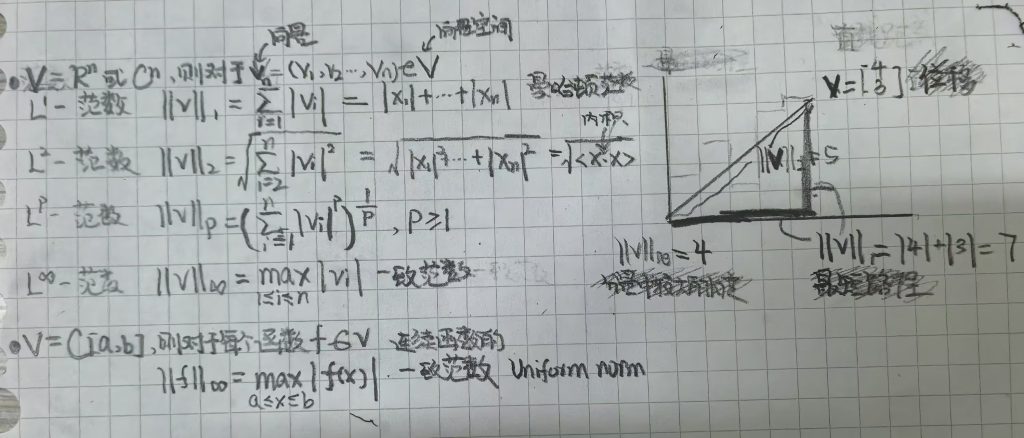 向量 向量空间
• V = Rⁿ 或 Cⁿ, 则对于 v = (v₁, v₂ ..., vₙ) ∈ V
L¹ - 范数 ||v||₁ = Σᵢ₌₁ⁿ |vᵢ| = |x₁| + ... + |xₙ| 曼哈顿范数
L² - 范数 ||v||₂ = √(Σᵢ₌₂ⁿ |vᵢ|²) = √(|x₁|² ... + |xₙ|²) = √<x·x> 内积
Lᵖ - 范数 ||v||ₚ = (Σᵢ₌₁ⁿ |vᵢ|ᵖ)^(1/p), P ≥ 1
L∞ - 范数 ||v||∞ = max_{1≤i≤n} |vᵢ| 一致范数
• V = C[a,b], 则对于每个函数 f ∈ V 连续函数的
||f||∞ = max_{a≤x≤b} |f(x)| 一致范数 Uniform norm
V = [4 3] 位移
||V||₂ = 5
||V||∞ = 4
||V||₁ = |4| + |3| = 7